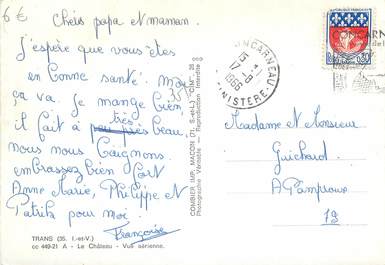 6 €
Chers papa et maman.
J'espère que vous êtes
en bonne santé. Moi
ça va. Je mange bien
il fait très beau,
nous nous baignons.
embrassez bien fort
Anne Marie, Philippe et
Patrik pour moi.
Françoise
TRANS (35. I.-et-V.)
cc 449-21 A - Le Château - Vue aérienne.
COMBIER IMP. MACON (71. S.-et-L.) "CIM"
Photographie Véritable — Reproduction Interdite
CONCARNEAU
15 H
17 -8
1966
FINISTERE
CONCARN
0,30
Madame et Monsieur
Guichard